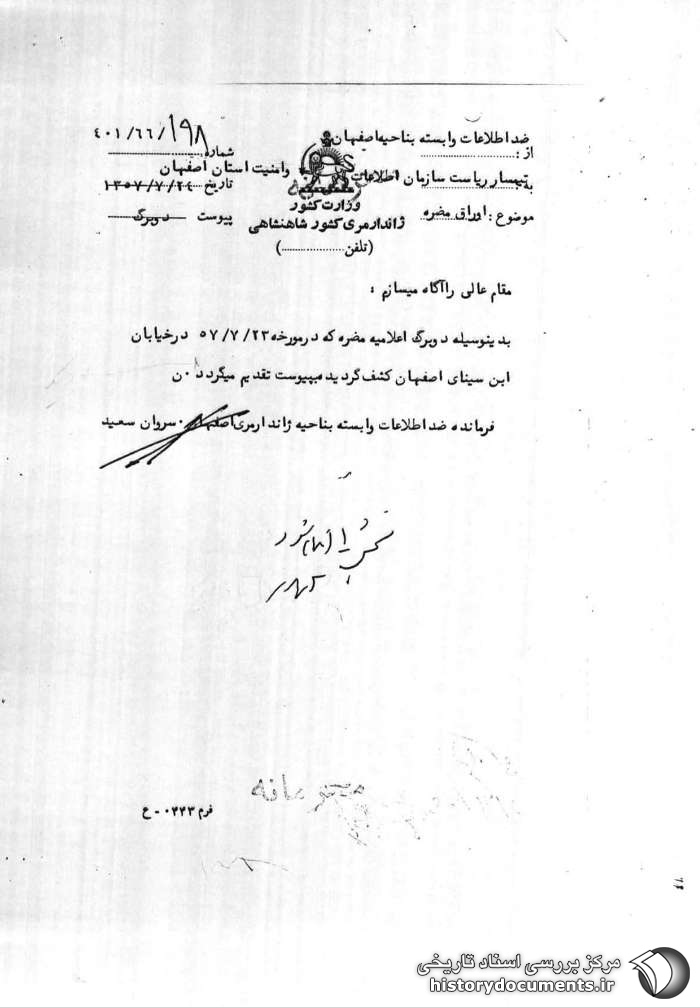 ضد اطلاعات وابسته بناحیه اصفهان
از :
شماره ۴۰۱/۶۶/۱۹۸
به تیمسار ریاست سازمان اطلاعات و امنیت استان اصفهان
تاریخ ۱۳۵۷/۷/۲۴
موضوع : اوراق مضره
پیوست دوبرگ
وزارت کشور
ژاندارمری کشور شاهنشاهی
(تلفن ..................)
مقام عالی را آگاه میسازم :
بدینوسیله دوبرگ اعلامیه مضره که در مورخه ۵۷/۷/۲۳ در خیابان
ابن سینای اصفهان کشف گردید بپیوست تقدیم میگردد ۰ ن
فرمانده ضد اطلاعات وابسته بناحیه ژاندارمری اصفهان ۰ سروان سعید
محرمانه
فرم ۰۳۴۳ - ع
مرکز بررسی اسناد تاریخی
historydocuments.ir